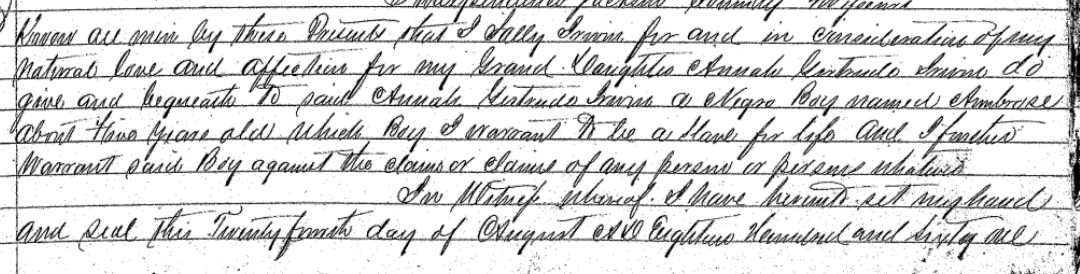 Know all men by these Presents that I Sally Irwin for and in consideration of my
natural love and affection for my Grand Daughter Annah Gertrude Irwin do
give and bequeath to said Annah Gertrude Irwin a Negro Boy named Ambrose
about two years old which Boy I warrant to be a slave for life and I further
warrant said Boy against the claim or claims of any person or persons whatever
In Witness whereof I have hereunto set my hand
and seal this Twenty fourth day of August AD Eighteen Hundred and Sixty one